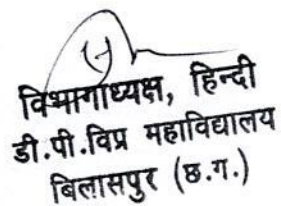 विभागाध्यक्ष, हिन्दी
डी.पी.विप्र महाविद्यालय
बिलासपुर (छ.ग.)